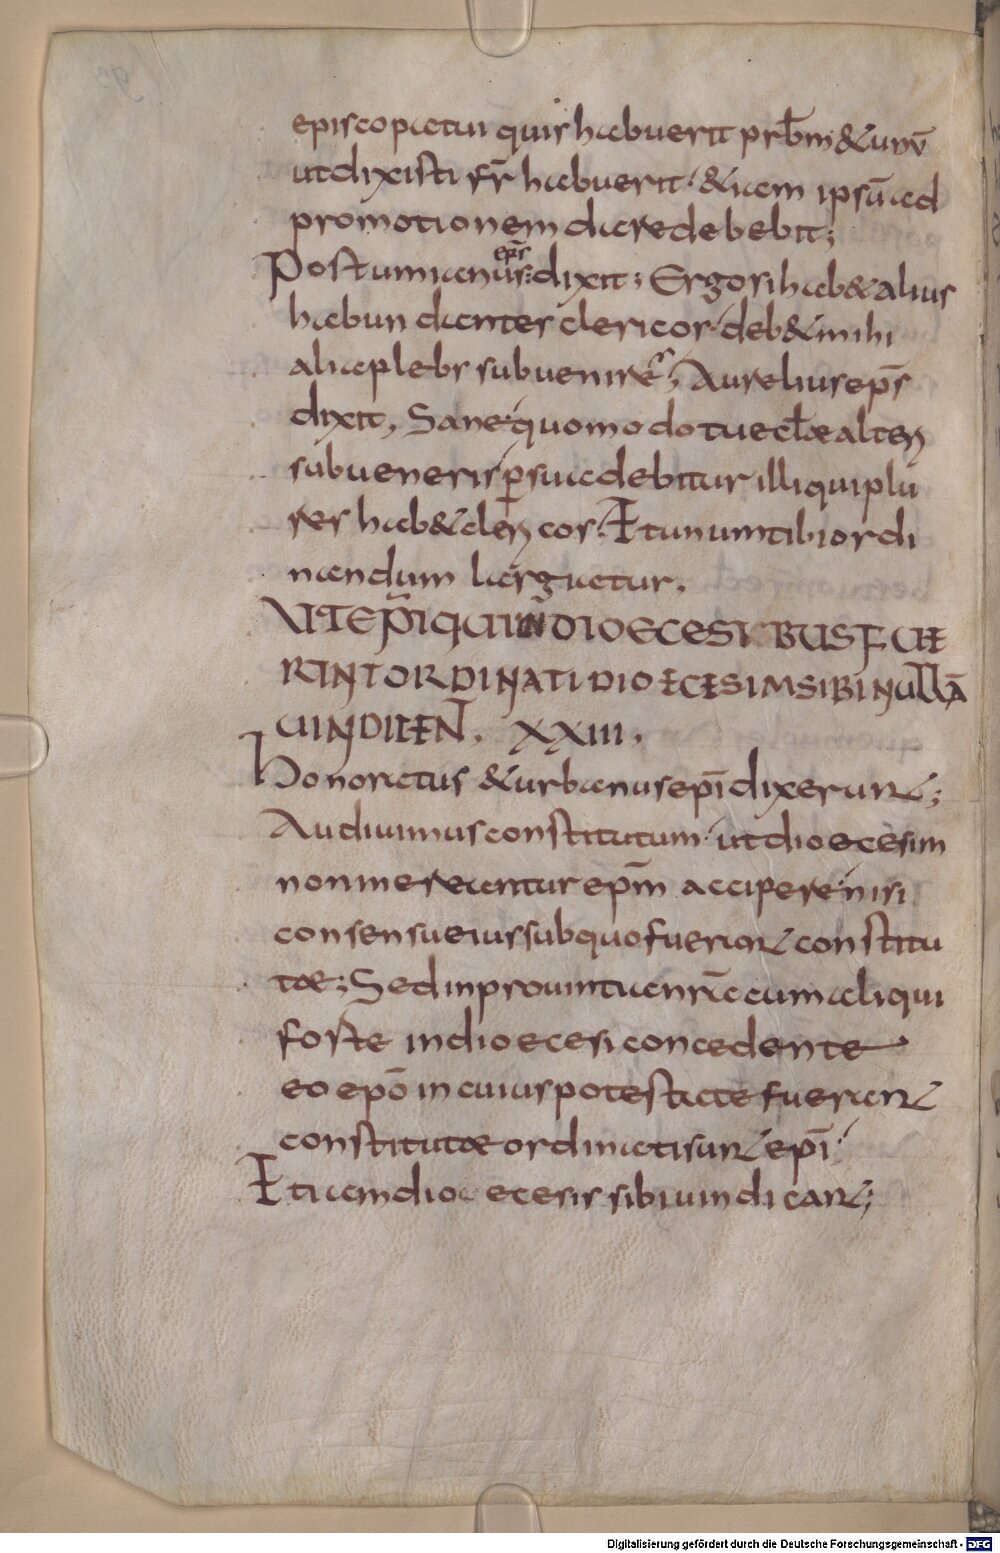 episcopatui quis habuerit prb̄m & unū
ut dixisti fr̄ habuerit. & iam ipsū ad
promotionem dare debebit;
Postumianus ep̄s dixit; Ergo si hab& alius
habundantes clericos. deb& mihi
alia plebs subvenire; Aurelius ep̄s
dixit, Sane quomodo tu eccl̄ae alteri
subveneris p̱suadebitur illi qui plu
res hab& clericos. Et unum tibi ordi
nandum largiatur,
UT EP̄I QUI IN DIOECESIBUS FUE
RINT ORDINATI DIOECESIM SIBI NULLĀ
UINDICEN̄T. XXIII.
Honoratus & urbanus ep̄i dixerunt;
Audivimus constitutum. ut dioecesim
non mereantur ep̄m accipere. nisi
consensu eius sub quo fuerant constitu
tae; Sed in provintia nr̄a cum aliqui
forte in dioecesi concedente
eo ep̄o in cuius potestate fuerant
constitutae ordinati sunt ep̄i.
Etiam dioecesis sibi uindicant;
Digitalisierung gefördert durch die Deutsche Forschungsgemeinschaft - DFG